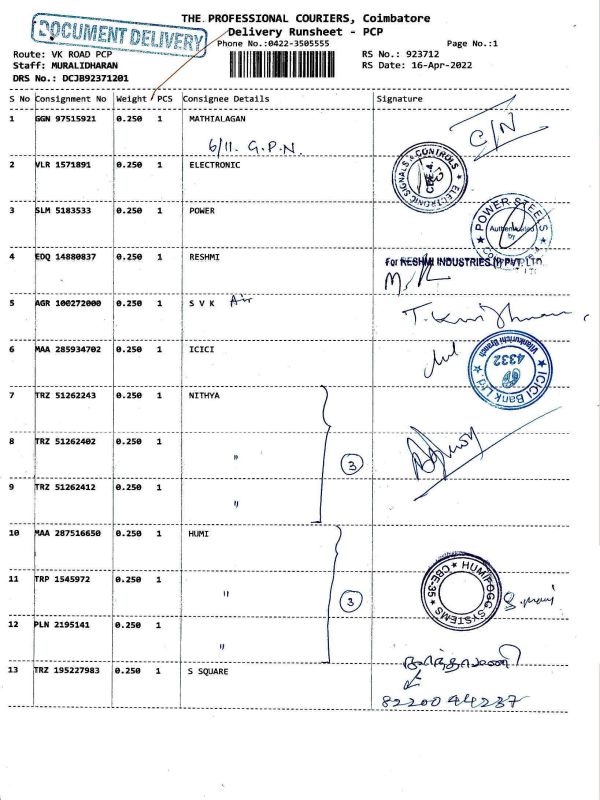 THE PROFESSIONAL COURIERS, Coimbatore
DOCUMENT DELIVERY
Delivery Runsheet - PCP
Phone No.:0422-3505555
Page No.:1
Route: VK ROAD PCP
RS No.: 923712
Staff: MURALIDHARAN
RS Date: 16-Apr-2022
DRS No.: DCJB92371201
S No Consignment No Weight PCS Consignee Details Signature
1 GGN 97515921 0.250 1 MATHIALAGAN
6/11. G.P.N. C/N
2 VLR 1571891 0.250 1 ELECTRONIC
ELECTRONIC SIGNALS & CONTROLS
CBE-4.
3 SLM 5183533 0.250 1 POWER
POWER STEELS
Authenticated
4 EDQ 14880837 0.250 1 RESHMI
For RESHMI INDUSTRIES (I) PVT. LTD.
5 AGR 100272000 0.250 1 S V K Air
6 MAA 285934702 0.250 1 ICICI
ICICI Bank Ltd
Vilankurichi Branch
4332
7 TRZ 51262243 0.250 1 NITHYA
8 TRZ 51262402 0.250 1 "
3
9 TRZ 51262412 0.250 1 "
10 MAA 287516650 0.250 1 HUMI
11 TRP 1545972 0.250 1 "
3
HUMIFOGG SYSTEMS
CBE-35
12 PLN 2195141 0.250 1 "
13 TRZ 195227983 0.250 1 S SQUARE
8220044237